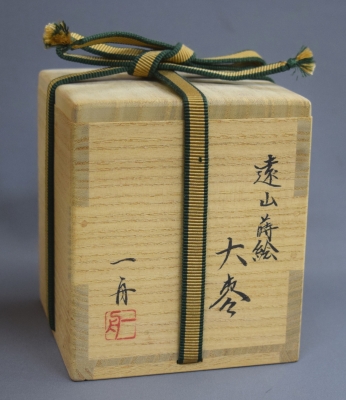 遠山蒔絵
大棗
一舟
一舟